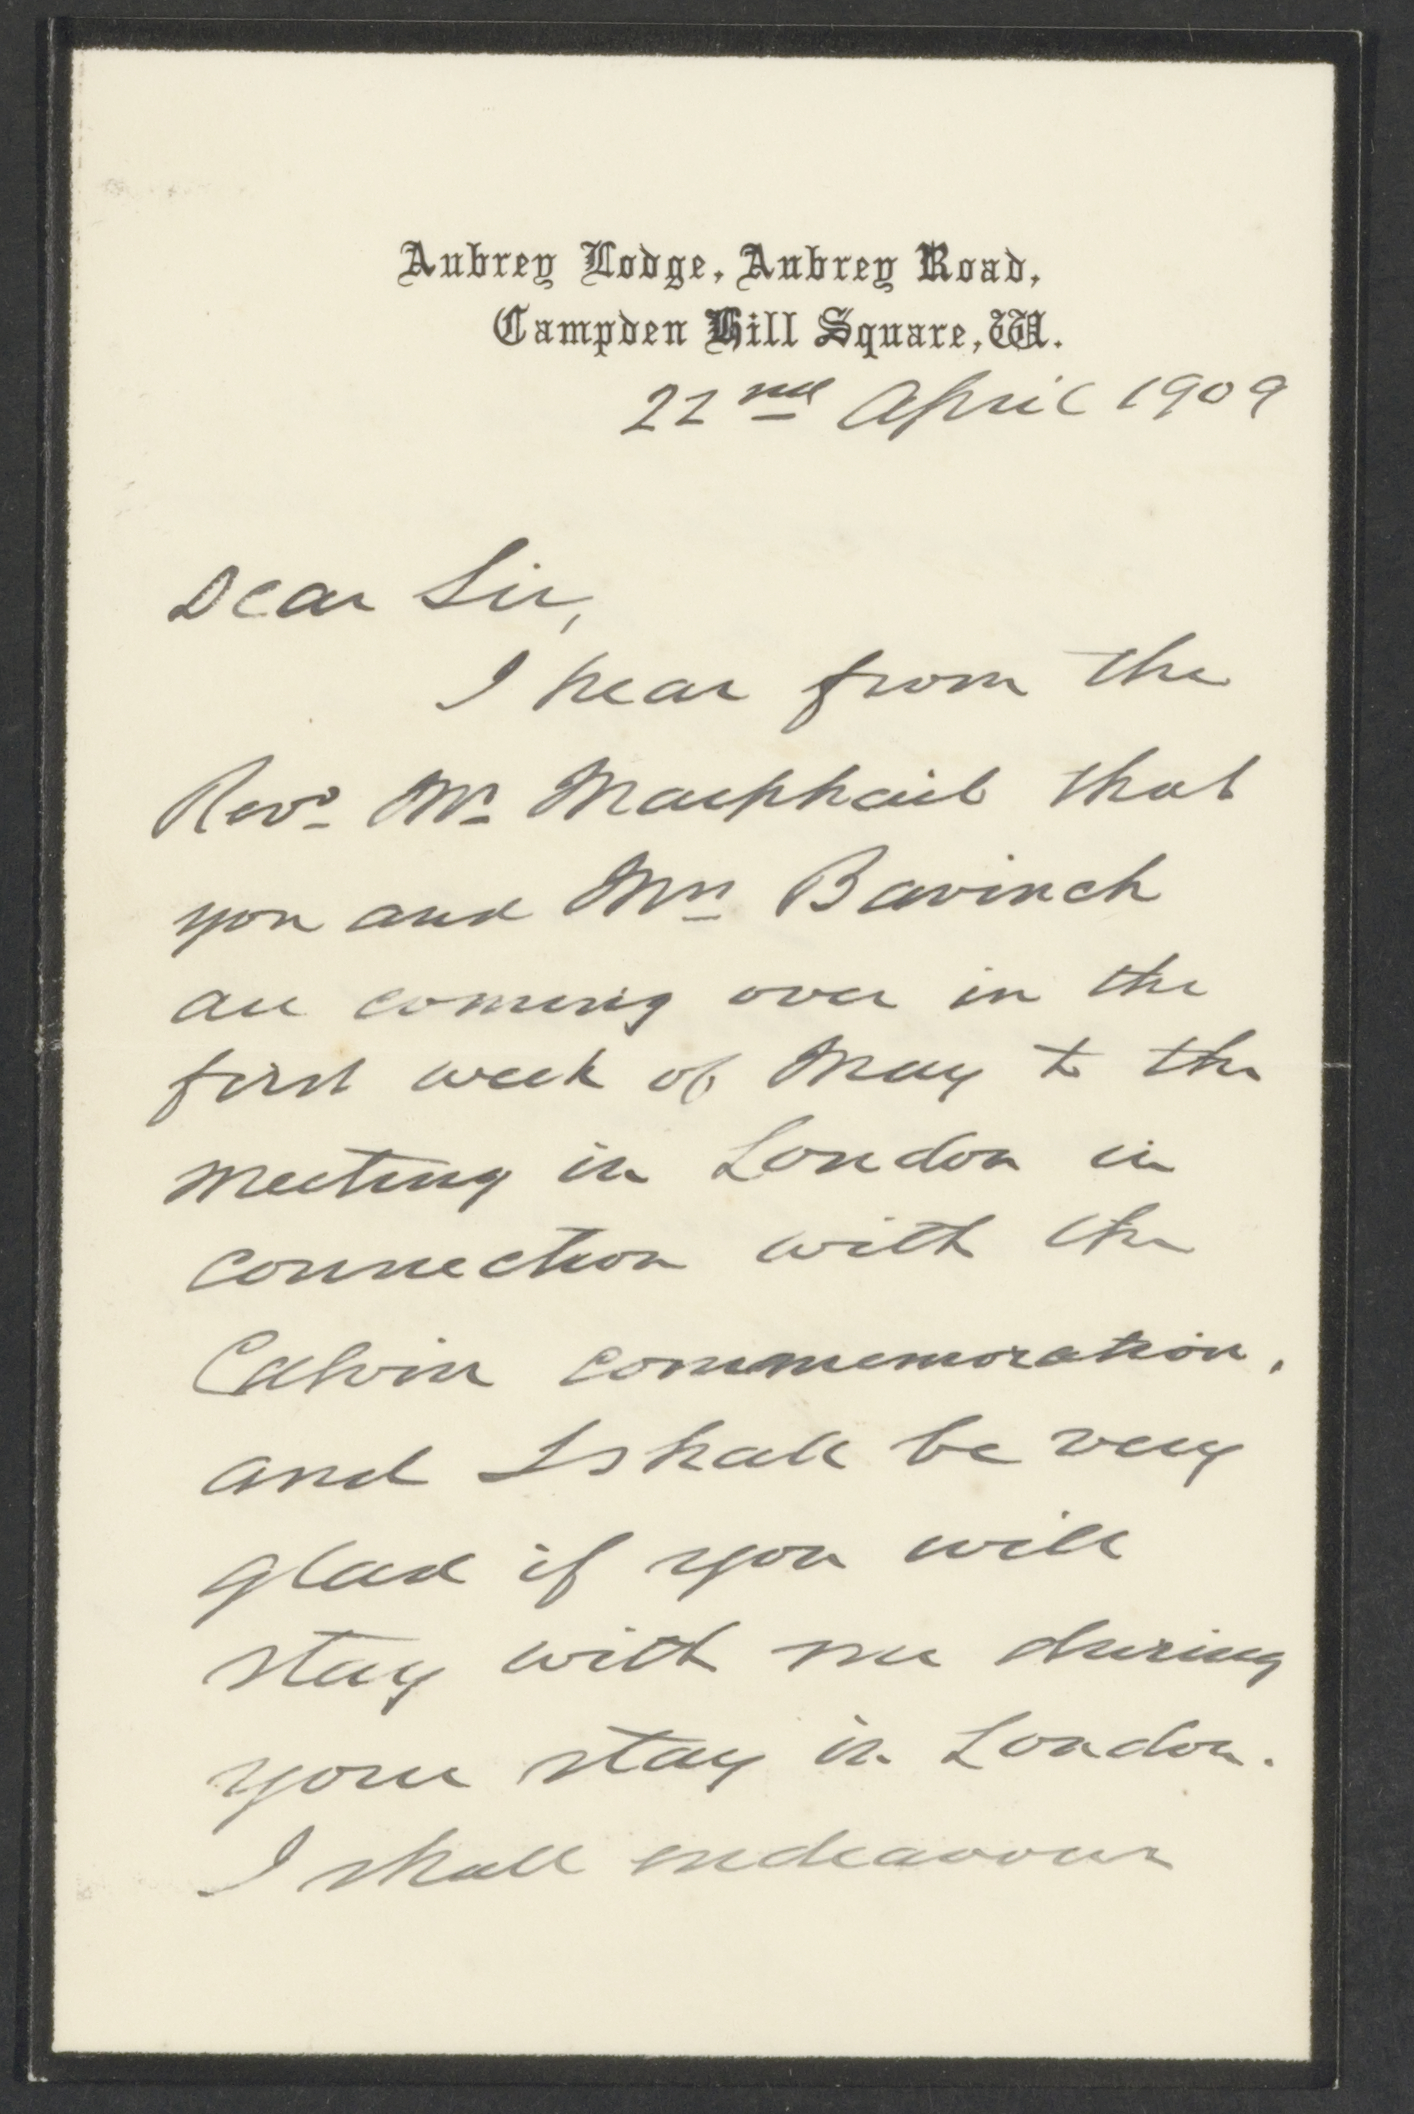 Aubrey Lodge, Aubrey Road,
Campden Hill Square, W.
22nd April 1909
Dear Sir,
I hear from the
Revd. Mr. Macphail that
you and Mrs. Bavinck
are coming over in the
first week of May to the
meeting in London in
connection with the
Calvin commemoration,
and I shall be very
glad if you will
stay with me during
your stay in London.
I shall endeavour